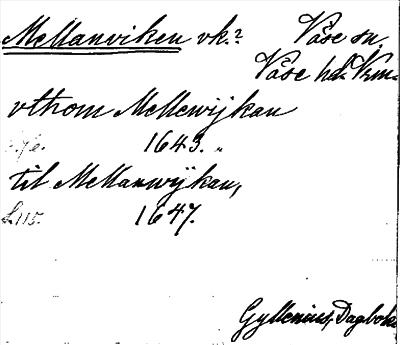 Mellanviken vk.? Väse sn.
Väse hd. Vrm.
vthom Mellewijkan
1643. „
til Mellanwijkan,
L 115. 1647.
Gyllenius, Dagbok